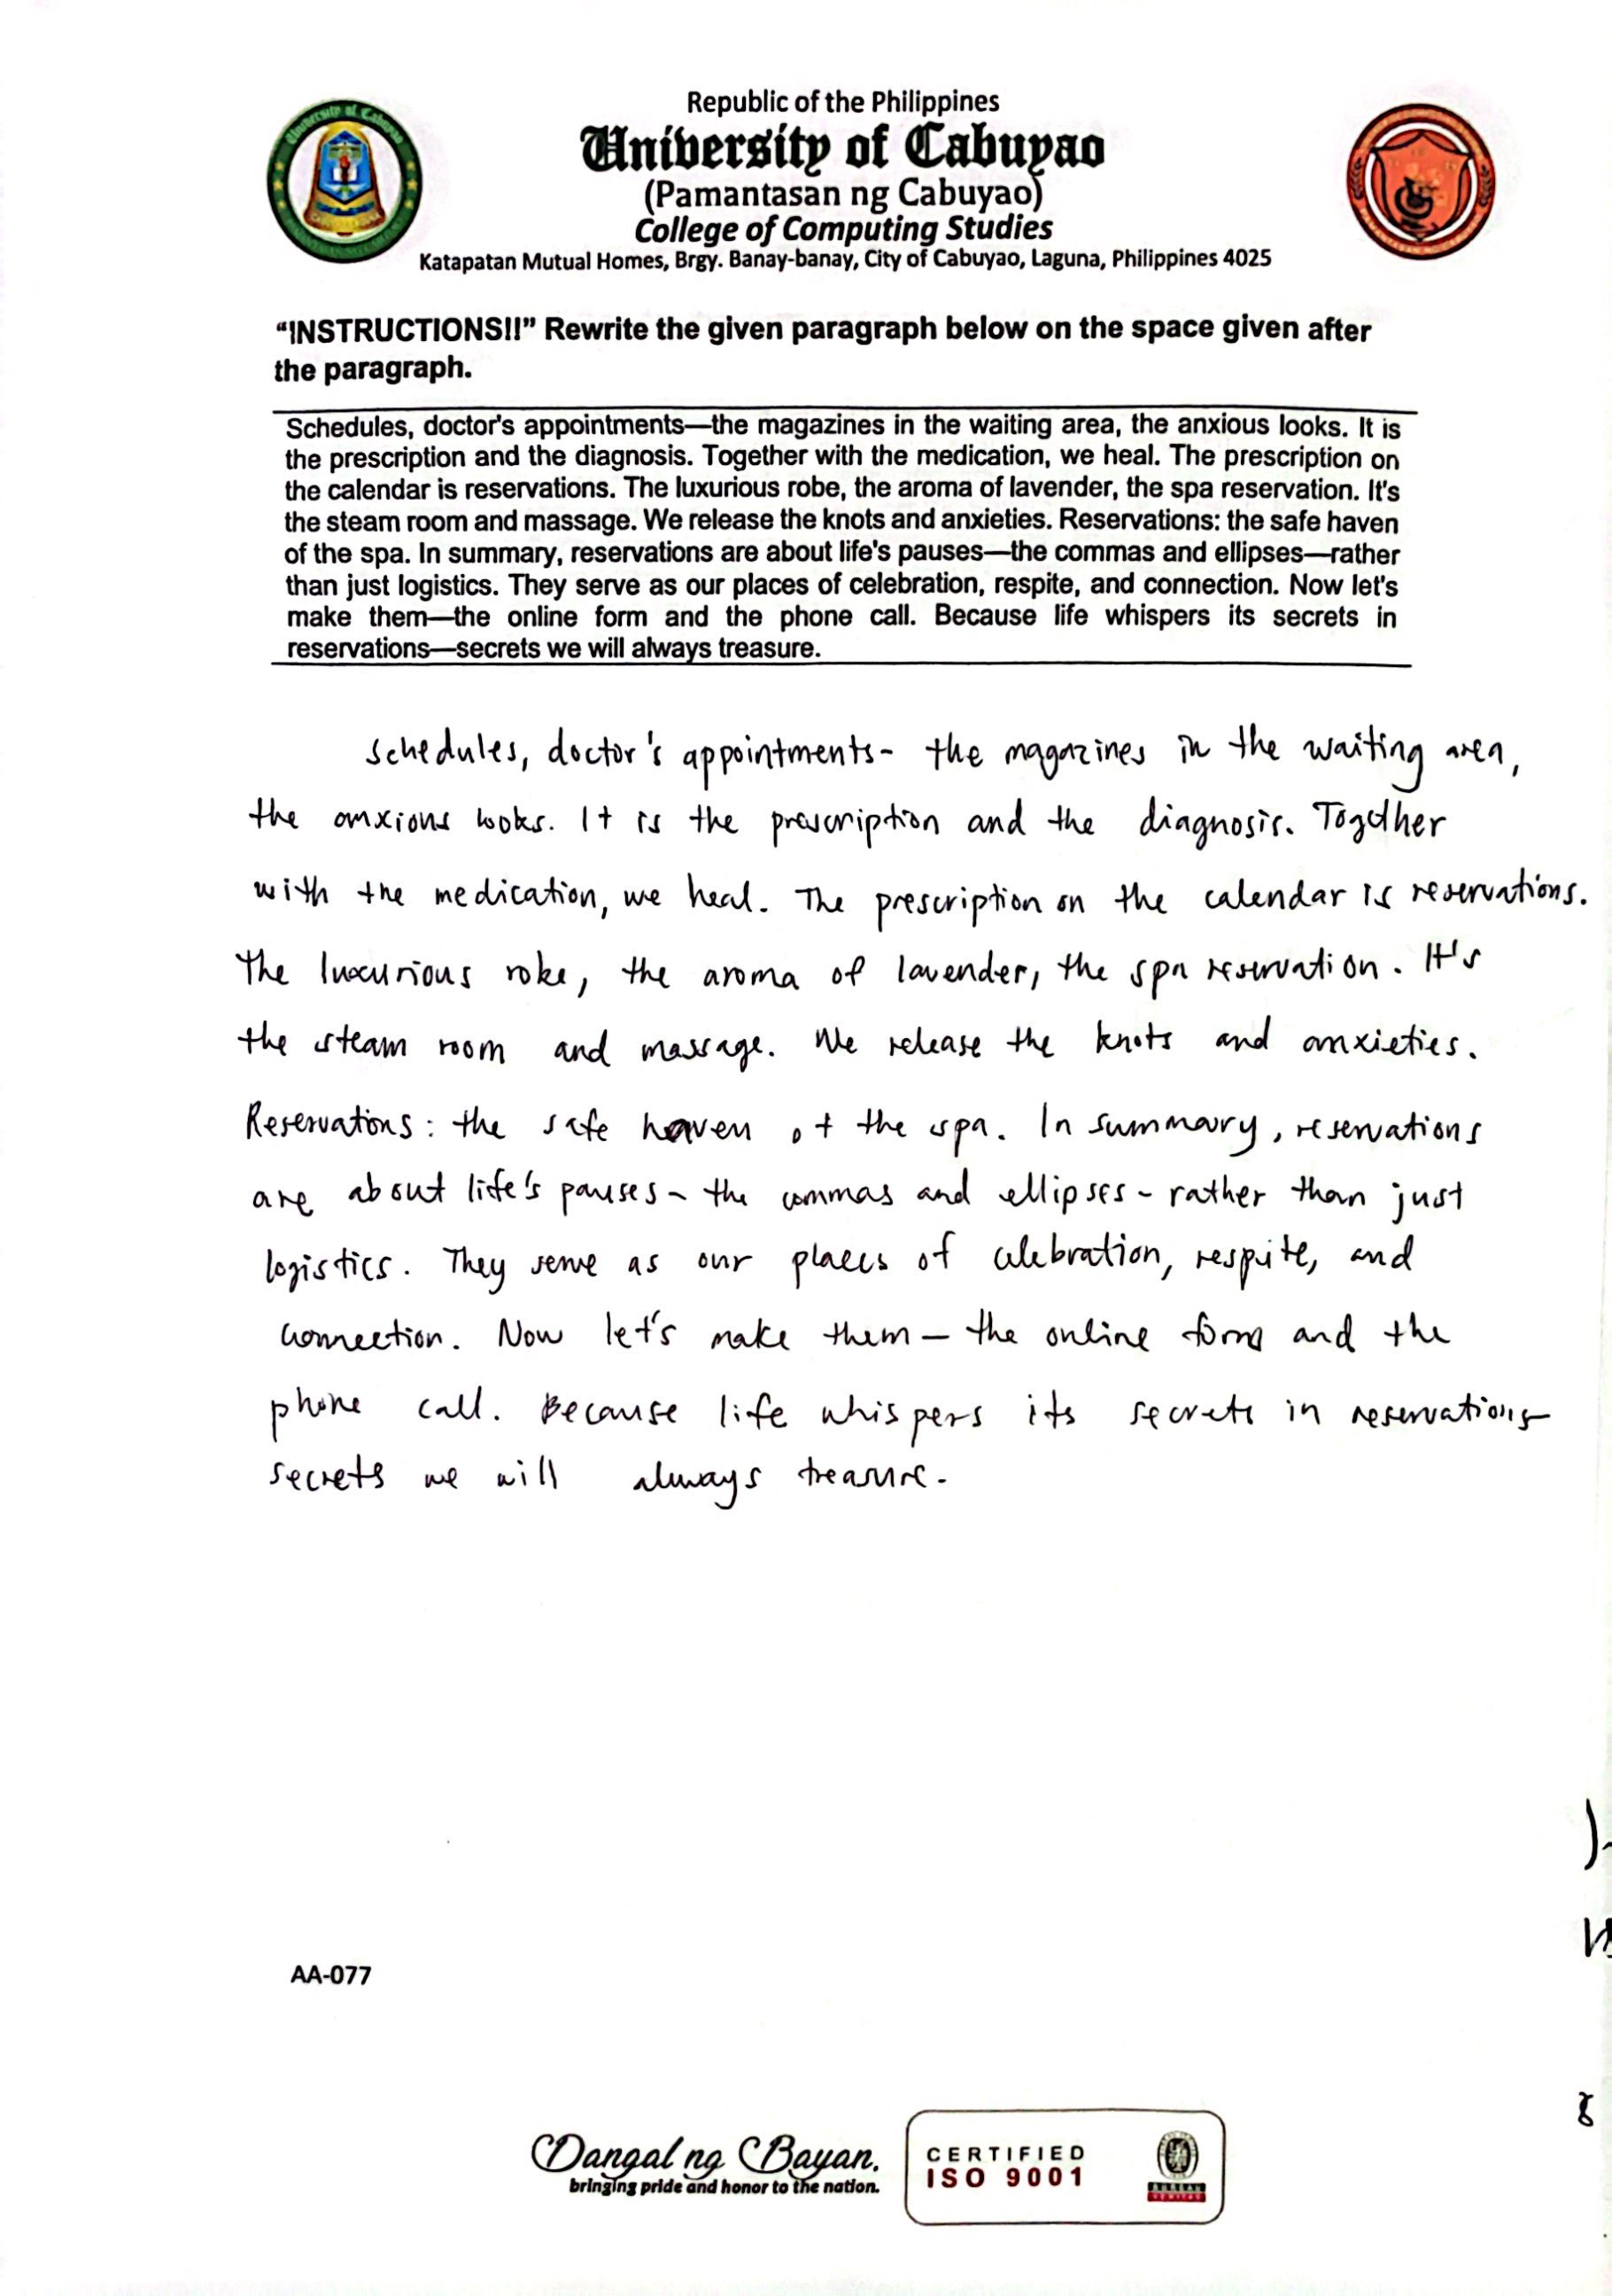 Republic of the Philippines
University of Cabuyao
(Pamantasan ng Cabuyao)
College of Computing Studies
Katapatan Mutual Homes, Brgy. Banay-banay, City of Cabuyao, Laguna, Philippines 4025
“INSTRUCTIONS!!” Rewrite the given paragraph below on the space given after
the paragraph.
Schedules, doctor's appointments—the magazines in the waiting area, the anxious looks. It is
the prescription and the diagnosis. Together with the medication, we heal. The prescription on
the calendar is reservations. The luxurious robe, the aroma of lavender, the spa reservation. It's
the steam room and massage. We release the knots and anxieties. Reservations: the safe haven
of the spa. In summary, reservations are about life's pauses—the commas and ellipses—rather
than just logistics. They serve as our places of celebration, respite, and connection. Now let's
make them—the online form and the phone call. Because life whispers its secrets in
reservations—secrets we will always treasure.
Schedules, doctor's appointments- the magazines in the waiting area,
the anxious looks. It is the prescription and the diagnosis. Together
with the medication, we heal. The prescription on the calendar is reservations.
The luxurious robe, the aroma of lavender, the spa reservation. It's
the steam room and massage. We release the knots and anxieties.
Reservations: the safe haven of the spa. In summary, reservations
are about life's pauses- the commas and ellipses- rather than just
logistics. They serve as our places of celebration, respite, and
connection. Now let's make them — the online form and the
phone call. Because life whispers its secrets in reservations-
secrets we will always treasure.
AA-077
Dangal ng Bayan.
bringing pride and honor to the nation.
CERTIFIED
ISO 9001
BUREAU
VERITAS